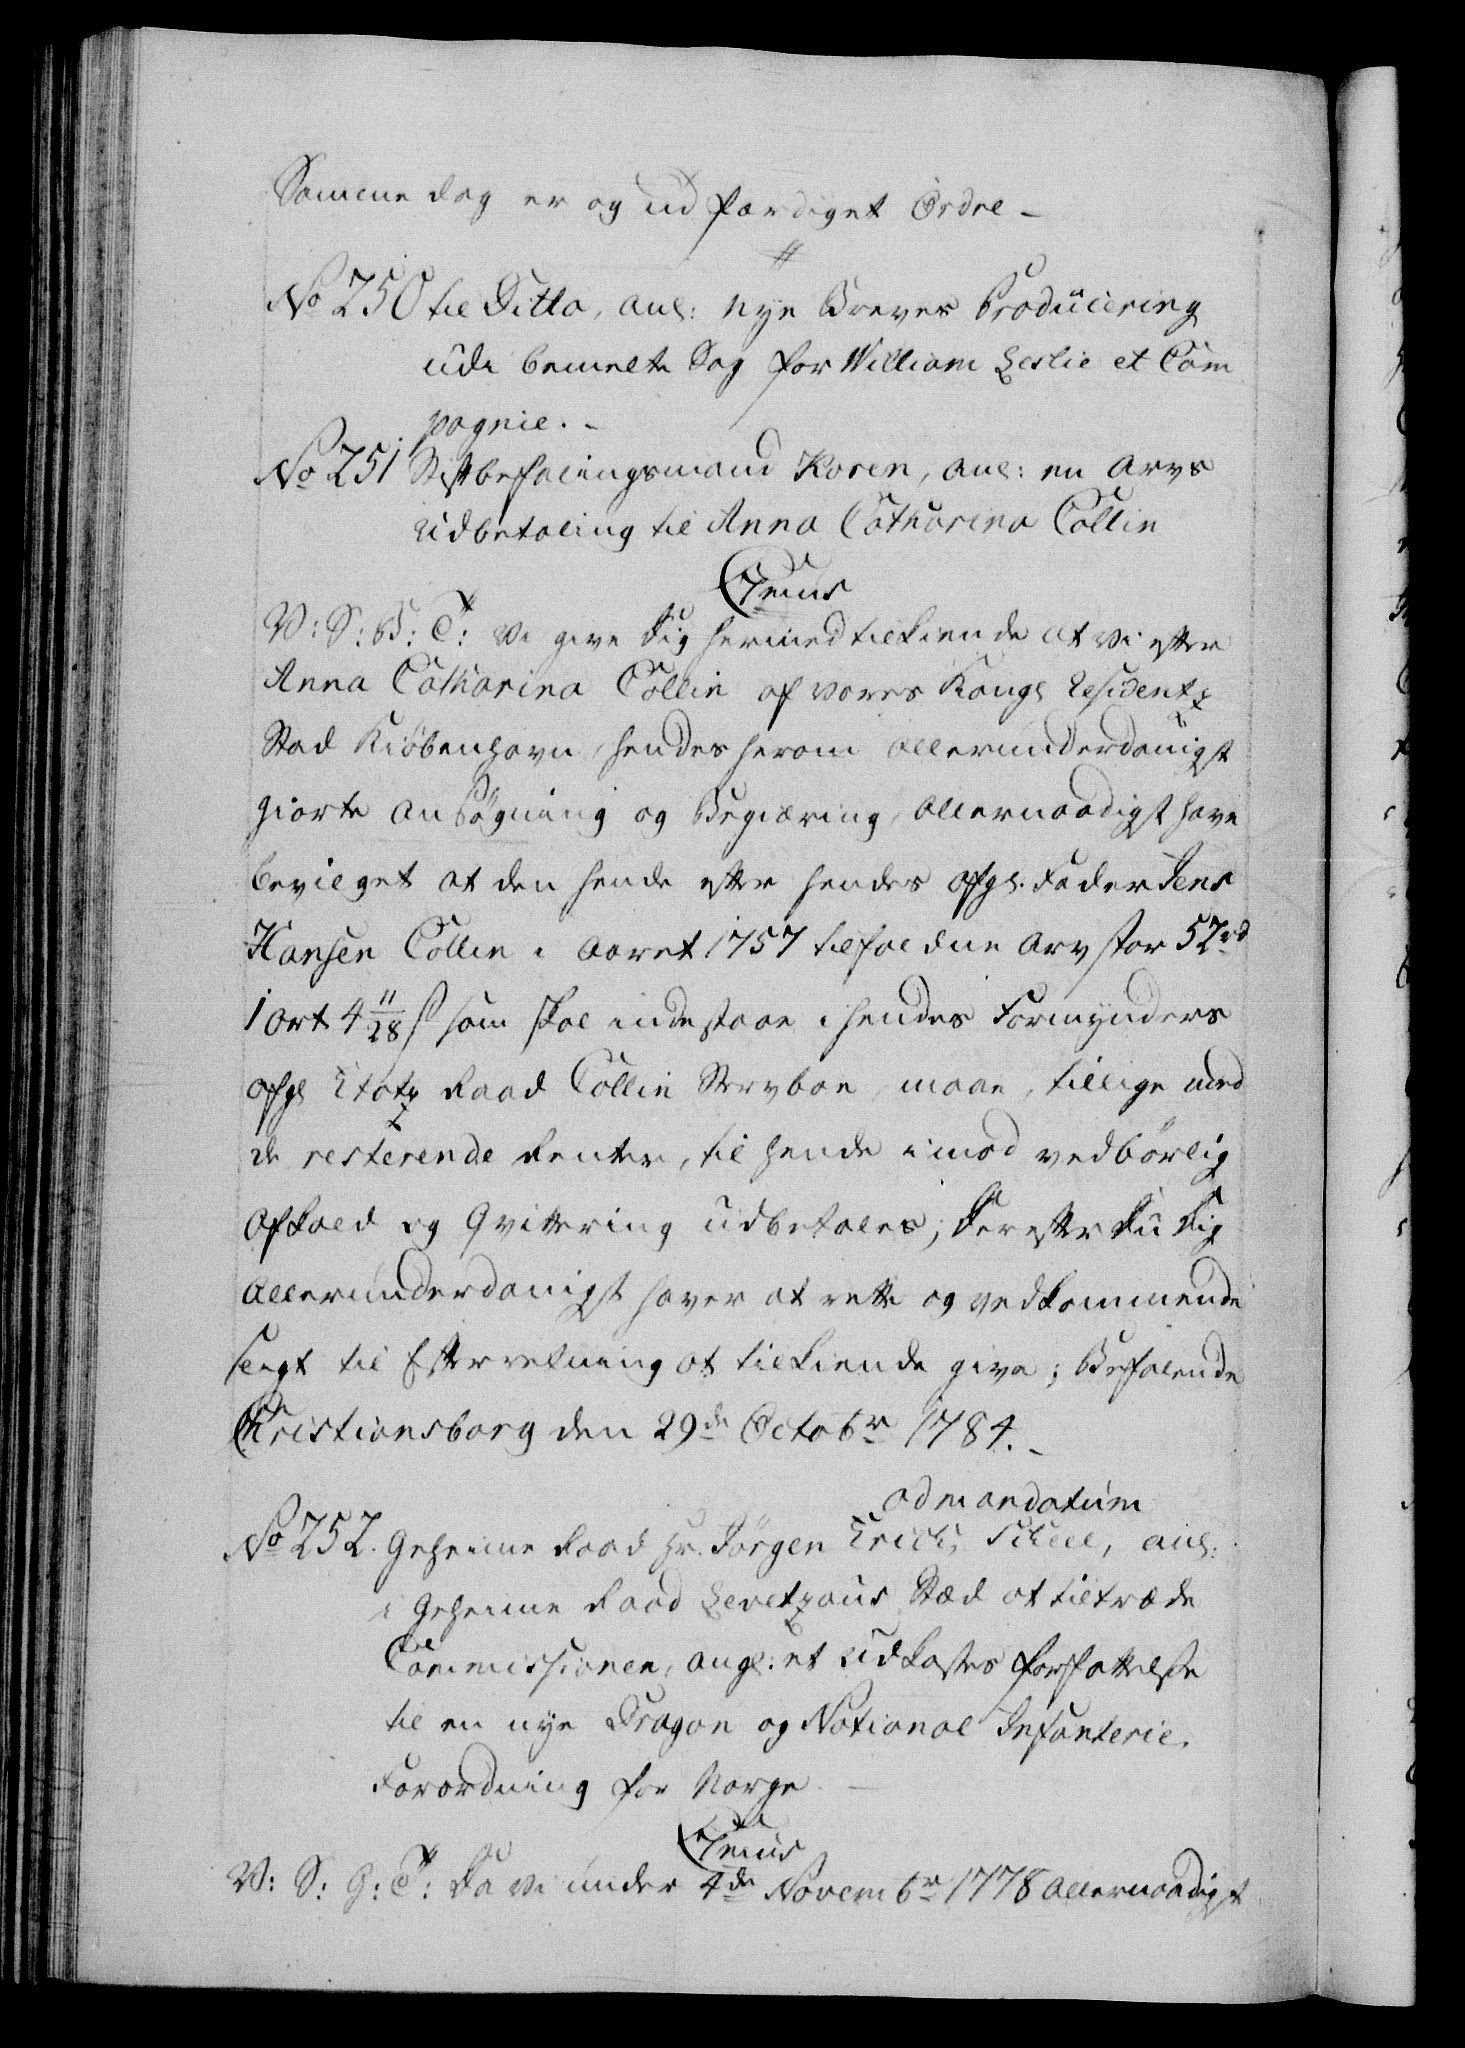 Samme dag er og udfærdiget Ordre –
No 250 til Ditto, anl: nye Breves Producering
udi bemelte Sag for William Leslie et Com
pagnie. –
No 251 Stiftbefalingsmand Koren, anl: en Arvs
Udbetaling til Anna Catharina Collin
C7enus
V: S: B: T: Vi give dig hermed tilkiende at vi efter
Anna Catharina Collin af vores Kongl Residentz
Stad Kiöbenhavn, hendes herom allerunderdanigst
giorte Ansögning og Begiæring, allernaadigst have
bevilget at den hende efter hendes afgl. Fader Jens
Hansen Collin i Aaret 1757 tilfaldne Arv stor 52 rd
1 ort 4 11/28 s som skal indestaae i hendes Formynders
afgl Etatz Raad Collin Stervboe, maae, tillige med
de resterende Renter, til hende imod vedbörlig
Afkald og Qvittering udbetales; Derefter du dig
allerunderdanigst haver at rette og vedkommende
sligt til Efterretning at tilkiende give; Befalende
Christiansborg den 29de Octobr 1784. –
ad mandatum
No 252. Geheime Raad Hr. Jörgen Erich Scheel, anl:
i Geheime Raad Levetzaus Stæd at tiltræde
Commissionen, angl: et Udkastes Forfattelse
til en nye Dragon og National Infanterie.
Forordning for Norge. –
C7enus
V: S: G: T: Da vi under 4de Novembr 1778 allernaadigst